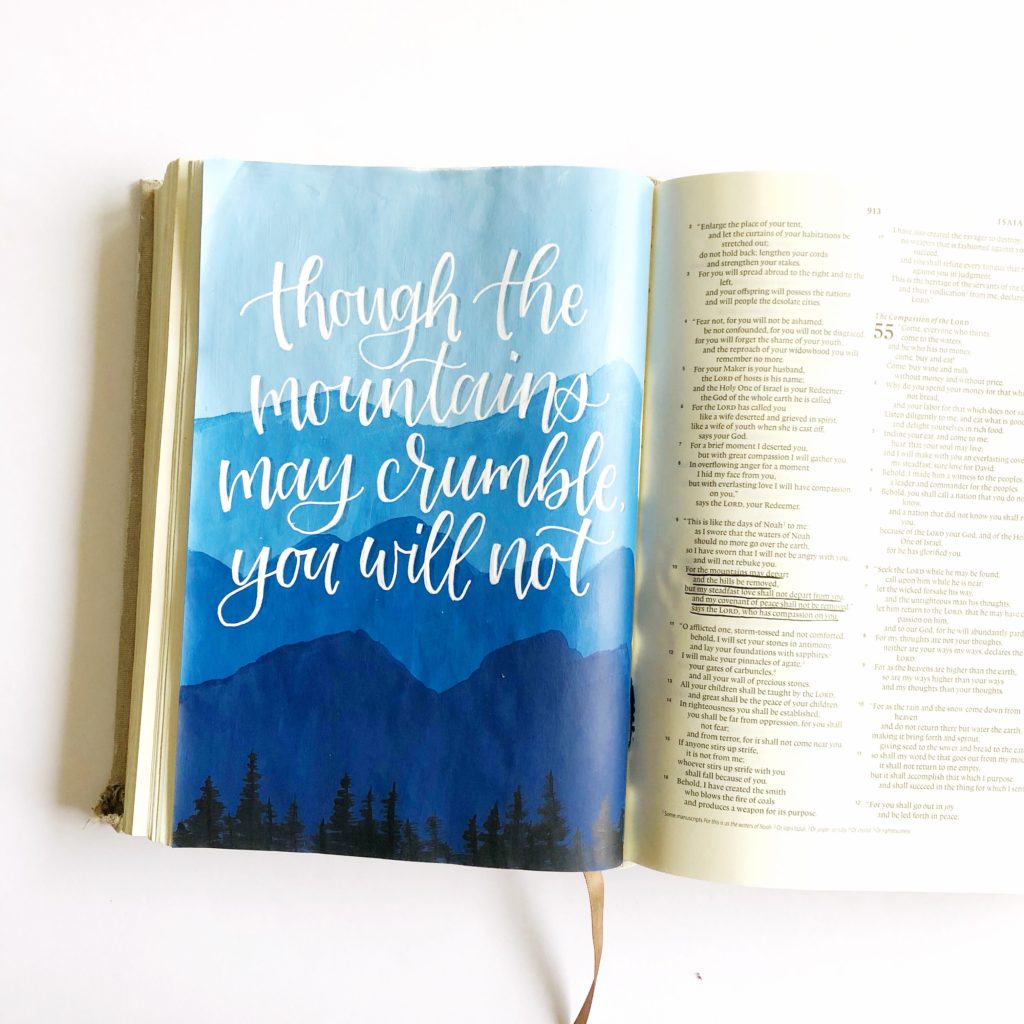 though the
mountains
may crumble,
you will not
913
2 "Enlarge the place of your tent,
and let the curtains of your habitations be
stretched out;
do not hold back; lengthen your cords
and strengthen your stakes.
3 For you will spread abroad to the right and to the
left,
and your offspring will possess the nations
and will people the desolate cities.
4 "Fear not, for you will not be ashamed;
be not confounded, for you will not be disgraced;
for you will forget the shame of your youth,
and the reproach of your widowhood you will
remember no more.
5 For your Maker is your husband,
the LORD of hosts is his name;
and the Holy One of Israel is your Redeemer,
the God of the whole earth he is called.
6 For the LORD has called you
like a wife deserted and grieved in spirit,
like a wife of youth when she is cast off,
says your God.
7 For a brief moment I deserted you,
but with great compassion I will gather you.
8 In overflowing anger for a moment
I hid my face from you,
but with everlasting love I will have compassion
on you,"
says the LORD, your Redeemer.
9 "This is like the days of Noah¹ to me:
as I swore that the waters of Noah
should no more go over the earth,
so I have sworn that I will not be angry with you,
and will not rebuke you.
10 For the mountains may depart
and the hills be removed,
but my steadfast love shall not depart from you,
and my covenant of peace shall not be removed,"
says the LORD, who has compassion on you.
11 "O afflicted one, storm-tossed and not comforted,
behold, I will set your stones in antimony,
and lay your foundations with sapphires.²
12 I will make your pinnacles of agate,³
your gates of carbuncles,⁴
and all your wall of precious stones.
13 All your children shall be taught by the LORD,
and great shall be the peace of your children.
14 In righteousness you shall be established;
you shall be far from oppression, for you shall
not fear;
and from terror, for it shall not come near you.
15 If anyone stirs up strife,
it is not from me;
whoever stirs up strife with you
shall fall because of you.
16 Behold, I have created the smith
who blows the fire of coals
and produces a weapon for its purpose.
¹ Some manuscripts For this is as the waters of Noah
ISAIA
I have also created the ravager to destroy;
17 no weapon that is fashioned against you
succeed,
and you shall refute every tongue that
against you in judgment.
This is the heritage of the servants of the
and their vindication from me, declares
LORD."
The Compassion of the LORD
55 "Come, everyone who thirsts,
come to the waters;
and he who has no money,
come, buy and eat!
Come, buy wine and milk
without money and without price.
2 Why do you spend your money for that which
not bread,
and your labor for that which does not
Listen diligently to me, and eat what is good,
and delight yourselves in rich food.
3 Incline your ear, and come to me;
hear, that your soul may live;
and I will make with you an everlasting
my steadfast, sure love for David.
4 Behold, I made him a witness to the peoples,
a leader and commander for the peoples.
5 Behold, you shall call a nation that you do not
know,
and a nation that did not know you shall
you,
because of the LORD your God, and of the Holy
One of Israel,
for he has glorified you.
6 "Seek the LORD while he may be found;
call upon him while he is near;
7 let the wicked forsake his way,
and the unrighteous man his thoughts;
let him return to the LORD, that he may have
passion on him,
and to our God, for he will abundantly
8 For my thoughts are not your thoughts,
neither are your ways my ways, declares the
LORD.
9 For as the heavens are higher than the earth,
so are my ways higher than your ways
and my thoughts than your thoughts.
10 "For as the rain and the snow come down from
heaven
and do not return there but water the earth,
making it bring forth and sprout,
giving seed to the sower and bread to the
11 so shall my word be that goes out from my
it shall not return to me empty,
but it shall accomplish that which I purpose,
and shall succeed in the thing for which I
12 "For you shall go out in joy
and be led forth in peace;